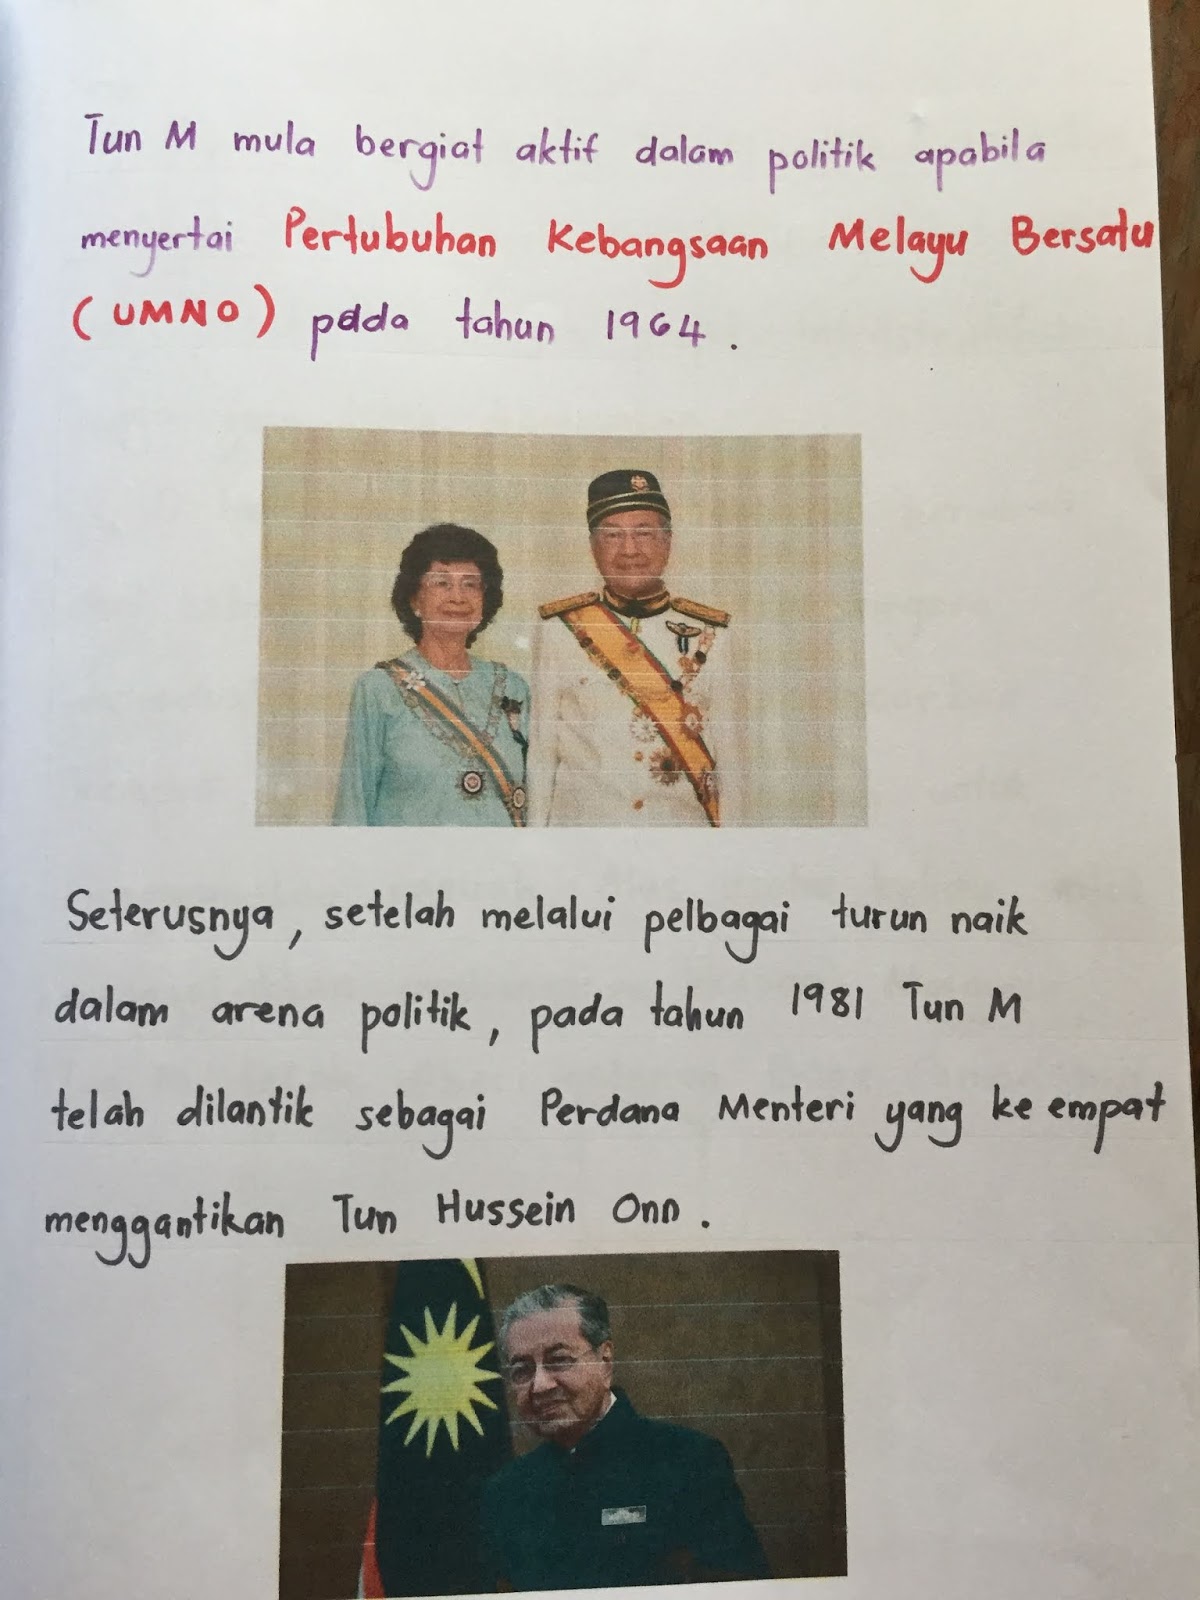 Tun M mula bergiat aktif dalam politik apabila
menyertai Pertubuhan Kebangsaan Melayu Bersatu
(UMNO) pada tahun 1964.
Seterusnya, setelah melalui pelbagai turun naik
dalam arena politik, pada tahun 1981 Tun M
telah dilantik sebagai Perdana Menteri yang ke empat
menggantikan Tun Hussein Onn.